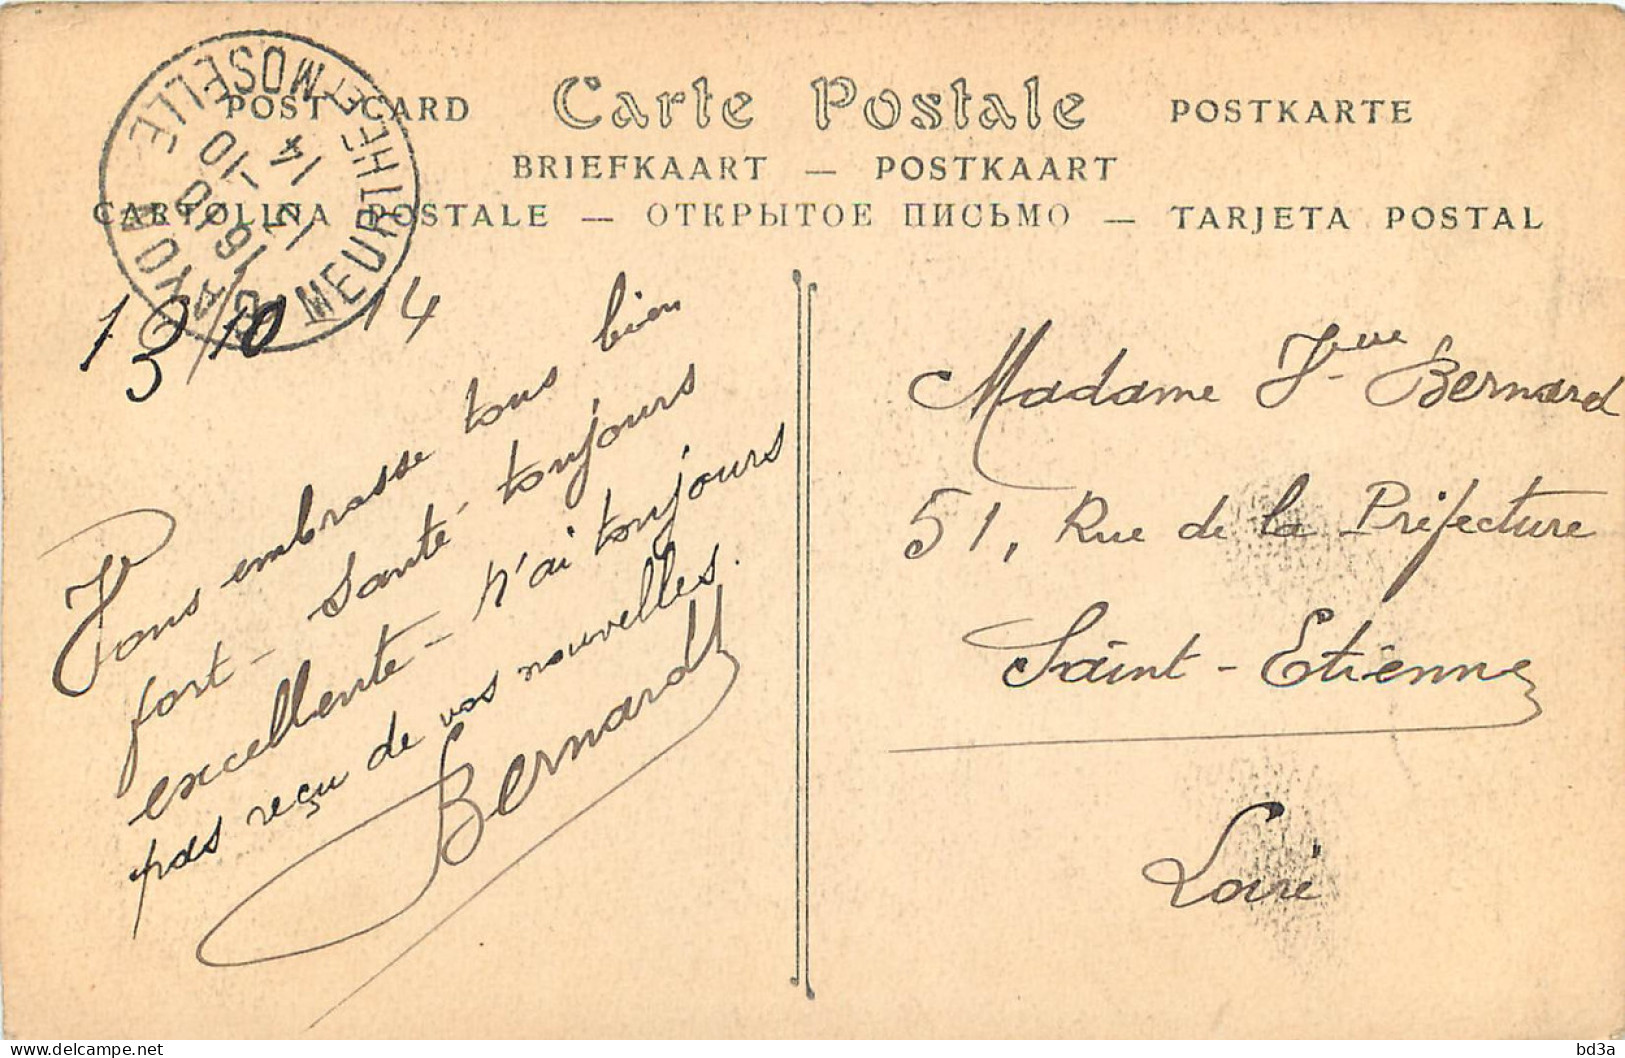 POST CARD Carte Postale POSTKARTE
BRIEFKAART — POSTKAART
CARTOLINA POSTALE — ОТКРЫТОЕ ПИСЬМО — TARJETA POSTAL
BAYON
MEURTHE ET MOSELLE
16-10
14
13/10 14
Vous embrasse tous bien
fort - Santé toujours
excellente - n'ai toujours
pas reçu de vos nouvelles.
Bernard
Madame Vve Bernard
51, Rue de la Préfecture
Saint-Etienne
Loire
bd3a